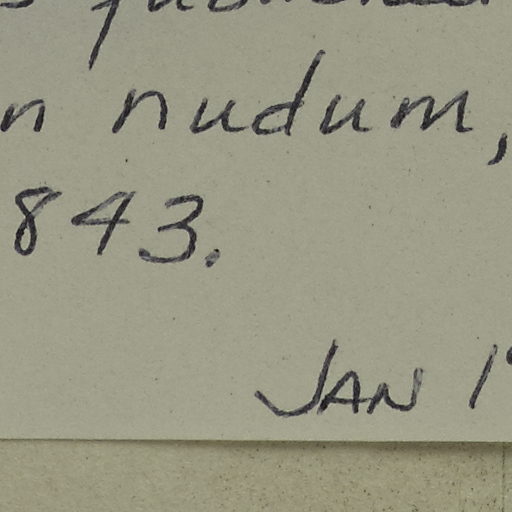 n nudum,
843.
JAN 1